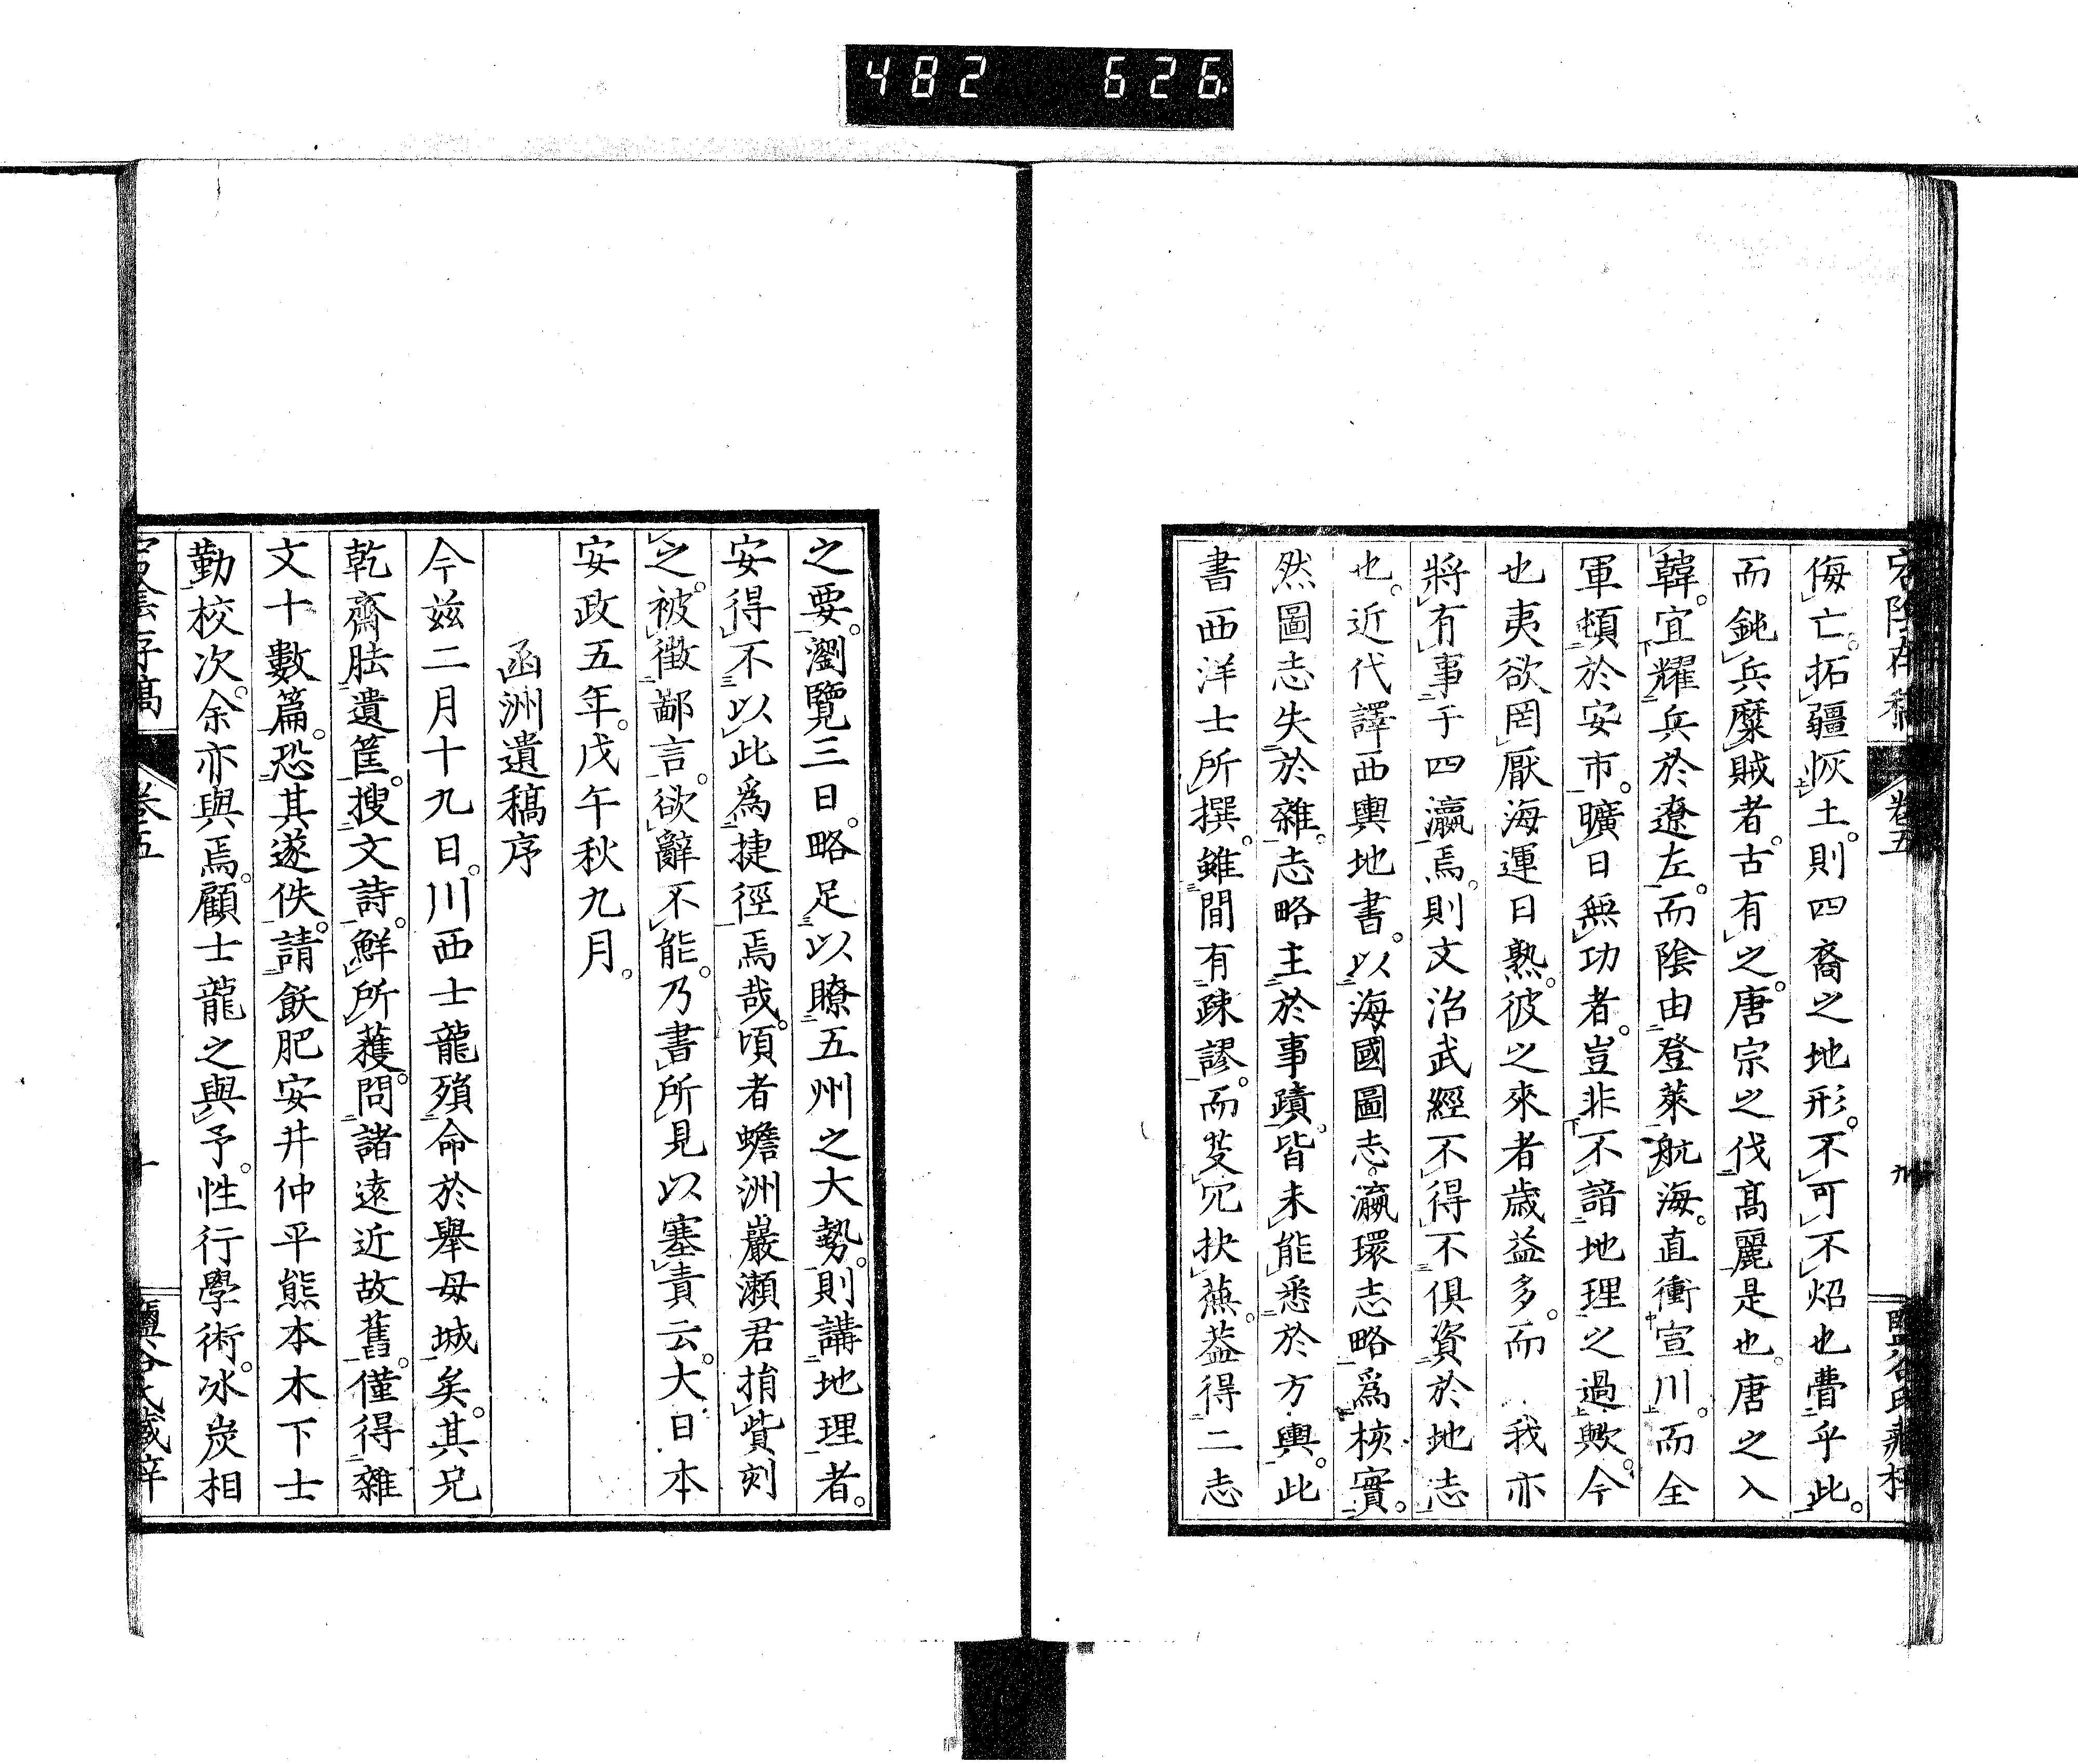 482 626
宕陰存稿 卷五 九 鹽谷氏藏梓
侮亡。拓疆恢土。則四裔之地形。不可不炤也。瞢乎此。
而鈍兵糜賊者。古有之。唐宗之伐高麗是也。唐之入
韓。宜耀兵於遼左。而陰由登萊航海。直衝宣川。而全
軍頓於安市。曠日無功者。豈非不諳地理之過歟。今
也夷欲罔厭海運日熟。彼之來者歲益多。而 我亦
將有事于四瀛焉。則文治武經不得不俱資於地志
也。近代譯西輿地書。以海國圖志。瀛環志略爲核實。
然圖志失於雜。志略主於事蹟。皆未能悉於方輿。此
書西洋士所撰。雖間有疎謬。而芟冗抉蕪。益得二志
之要。瀏覽三日。略足以瞭五州之大勢。則講地理者。
安得不以此爲捷徑焉哉。頃者蟾洲巖瀨君捐貲刻
之。被徵鄙言。欲辭不能。乃書所見以塞責云。大日本
安政五年。戊午秋九月。
函洲遺稿序
今兹二月十九日。川西士龍殞命於擧母城矣。其兄
乾齋胠遺筐。搜文詩。鮮所蒦。問諸遠近故舊。僅得雜
文十數篇。恐其遂佚。請飫肥安井仲平熊本木下士
勤校次。余亦與焉。顧士龍之與予。性行學術。冰炭相
宕陰存稿 卷五 十 鹽谷氏藏梓